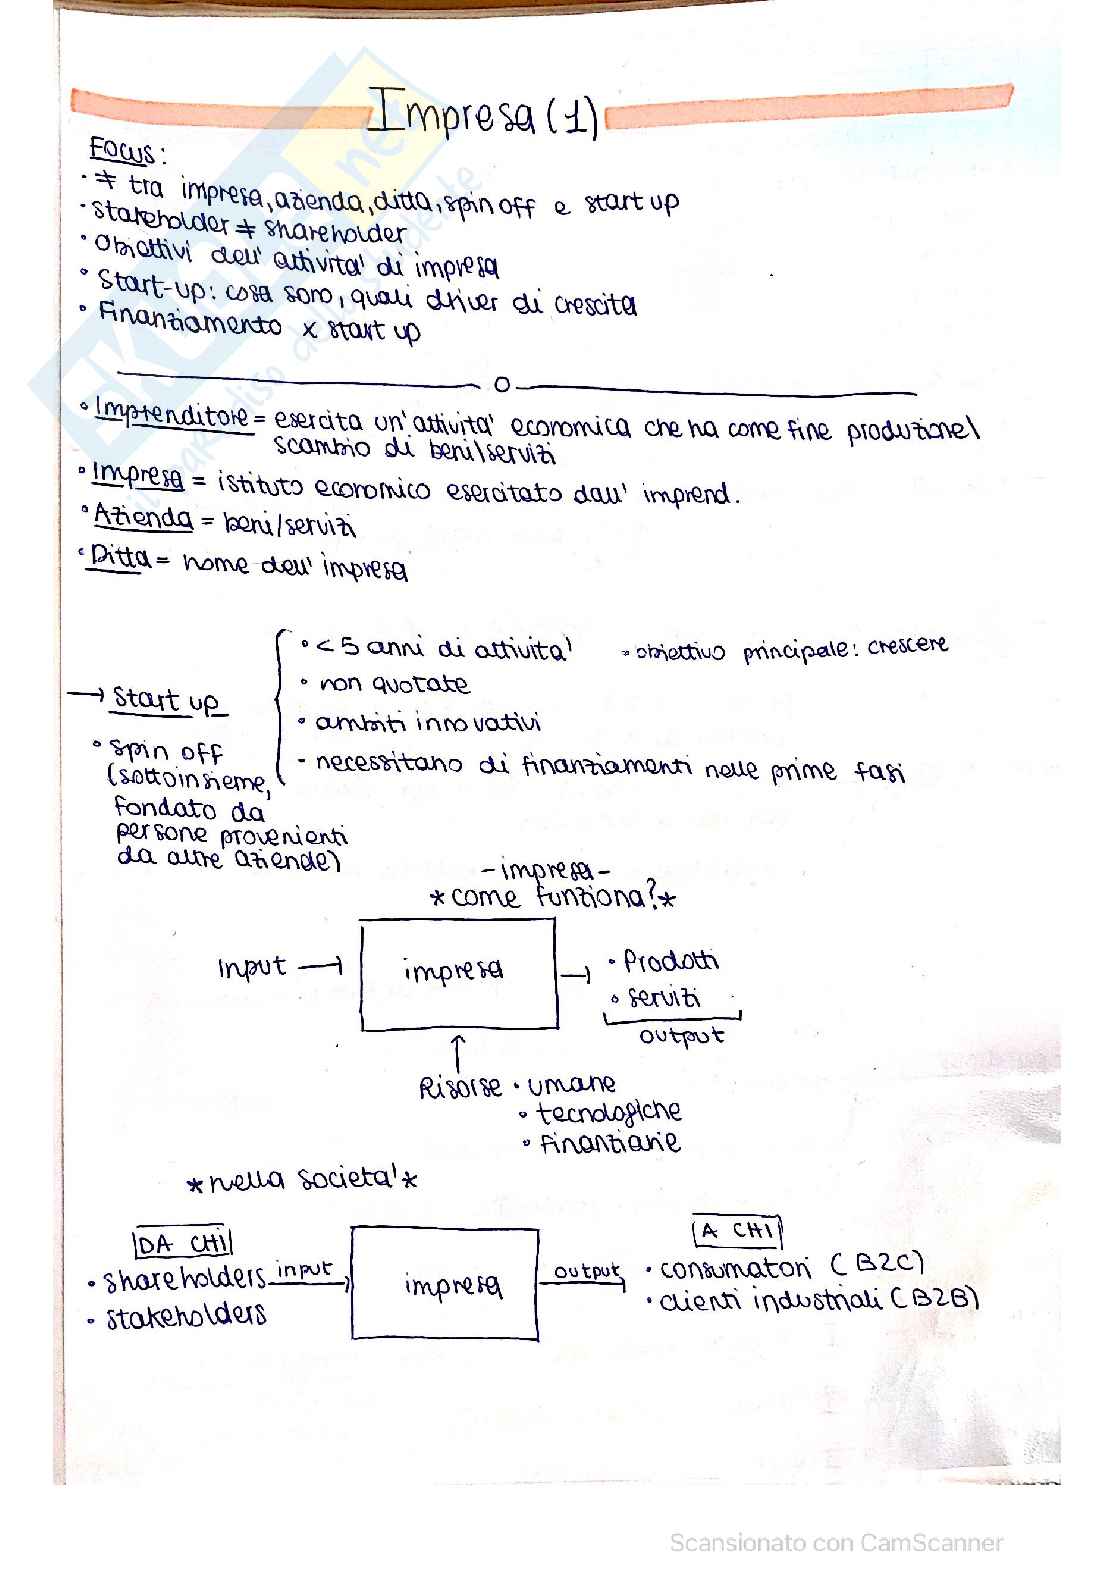 Impresa (1)
Focus:
· ≠ tra impresa, azienda, ditta, spin off e start up
· stakeholder ≠ shareholder
· Obiettivi dell' attivita' di impresa
· Start-up: cosa sono, quali driver di crescita
· Finanziamento x start up
· Imprenditore = esercita un' attivita' economica che ha come fine produzione\
scambio di beni\servizi
· Impresa = istituto economico esercitato dall' imprend.
· Azienda = beni/servizi
· Ditta = nome dell' impresa
· < 5 anni di attivita' · obiettivo principale: crescere
· non quotate
→ Start up
· ambiti innovativi
· Spin off
- necessitano di finanziamenti nelle prime fasi
(sottoinsieme,
fondato da
persone provenienti
da altre aziende)
- impresa -
* come funziona? *
Input → impresa → · Prodotti
· servizi
output
Risorse · umane
· tecnologiche
· finanziarie
* nella societa' *
DA CHI
A CHI
· shareholders input impresa output · consumatori (B2C)
· stakeholders
· clienti industriali (B2B)
Scansionato con CamScanner